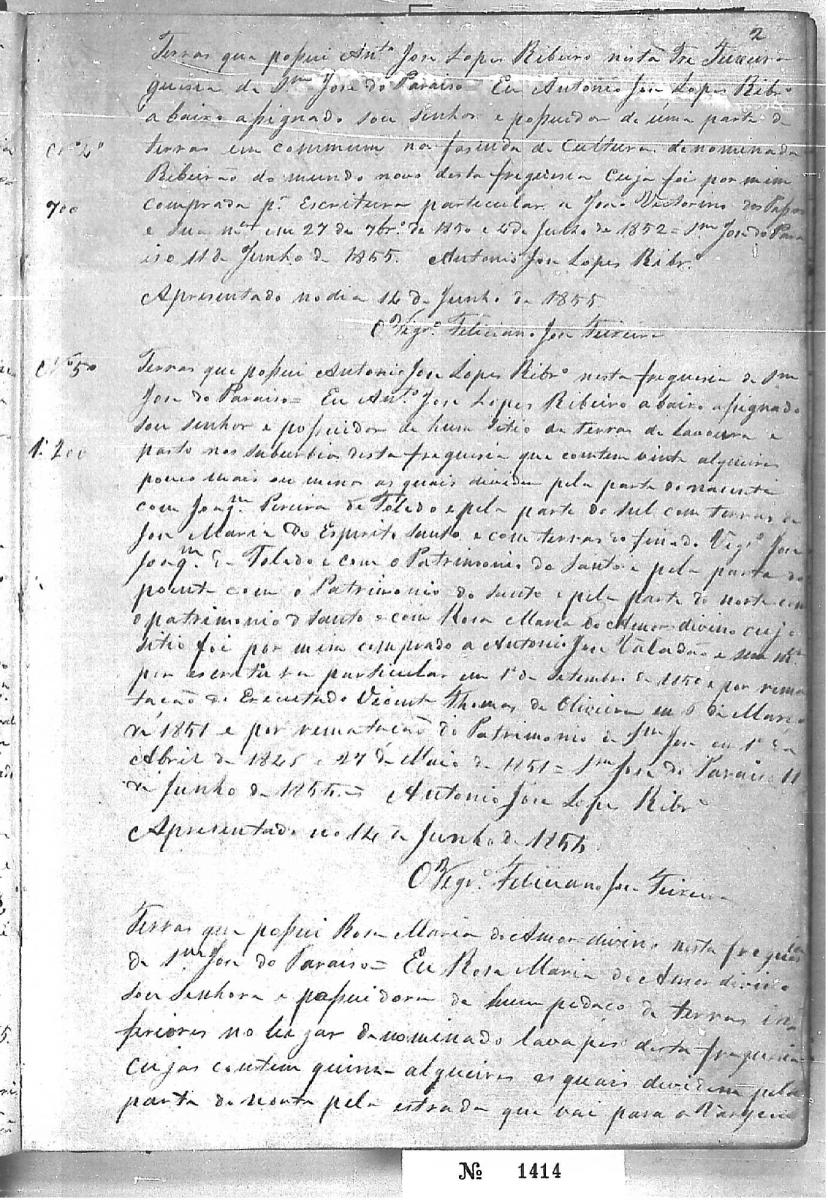 2
Terras que possui Antº Jose Lopes Ribeiro nesta Fre
guesia de Sm Jose do Paraiso = Eu Antonio Jose Lopes Ribrº
abaixo assignado sou senhor e possuidor de uma parte de
Nº 2º
terras em commum na fasenda de Cultura denominada
Ribeirão do mundo novo desta freguesia cuja foi por mim
700
comprada pr Escritura particular a João Victorino dos Passos
e sua mer em 27 de 7brº de 1850 e 2 de Julho de 1852 = Sm Jose do Para
iso 11 de Junho de 1855. Antonio Jose Lopes Ribrº
Apresentado no dia 14 de Junho de 1855
O Vigrº Feliciano Jose Teixeira
Nº
Terras que possui Antonio Jose Lopes Ribrº nesta freguesia de Sm
Jose do Paraiso = Eu Antº Jose Lopes Ribeiro abaixo assignado
sou senhor e possuidor de hum sitio de terras de lavoura e
1:200
pasto nos suburbios desta freguesia que contem vinte alqueires
pouco mais ou menos as quais dividem pela parte do nascente
com Joaqm Pereira de Toledo e pela parte do sul com terras de
Jose Maria do Espirito Santo e com terras do finado Vigrº Jose
Joaqm de Toledo e com o Patrimonio do Santo e pela parte do
poente com o Patrimonio do santo e pela parte do norte com
o patrimonio do santo e com Rosa Maria do Amor divino cujo
sitio foi por mim comprado a Antonio Jose Valadão e sua mer
por escritura particular em 1º de Setembro de 1850 e por rema
tação do Executado Vicente Thomas de Oliveira em de Março
de 1851 e por rematação do Patrimonio de Sm Jose em 1º de
Abril de 1845 e 27 de Maio de 1851 = Sm Jose do Paraiso 11
de Junho de 1855. = Antonio Jose Lopes Ribrº
Apresentado no 14 de Junho de 1855.
O Vigrº Feliciano Jose Teixeira
Terras que possui Rosa Maria do Amor divino nesta freguesia
de Sm Jose do Paraiso = Eu Rosa Maria do Amor divino
sou Senhora e possuidora de hum pedaço de terras in
feriores no lugar denominado lava pes desta freguesia
cujas contem quinse alqueires as quais dividem pela
parte do norte pela estrada que vai para a Vargem
Nº 1414